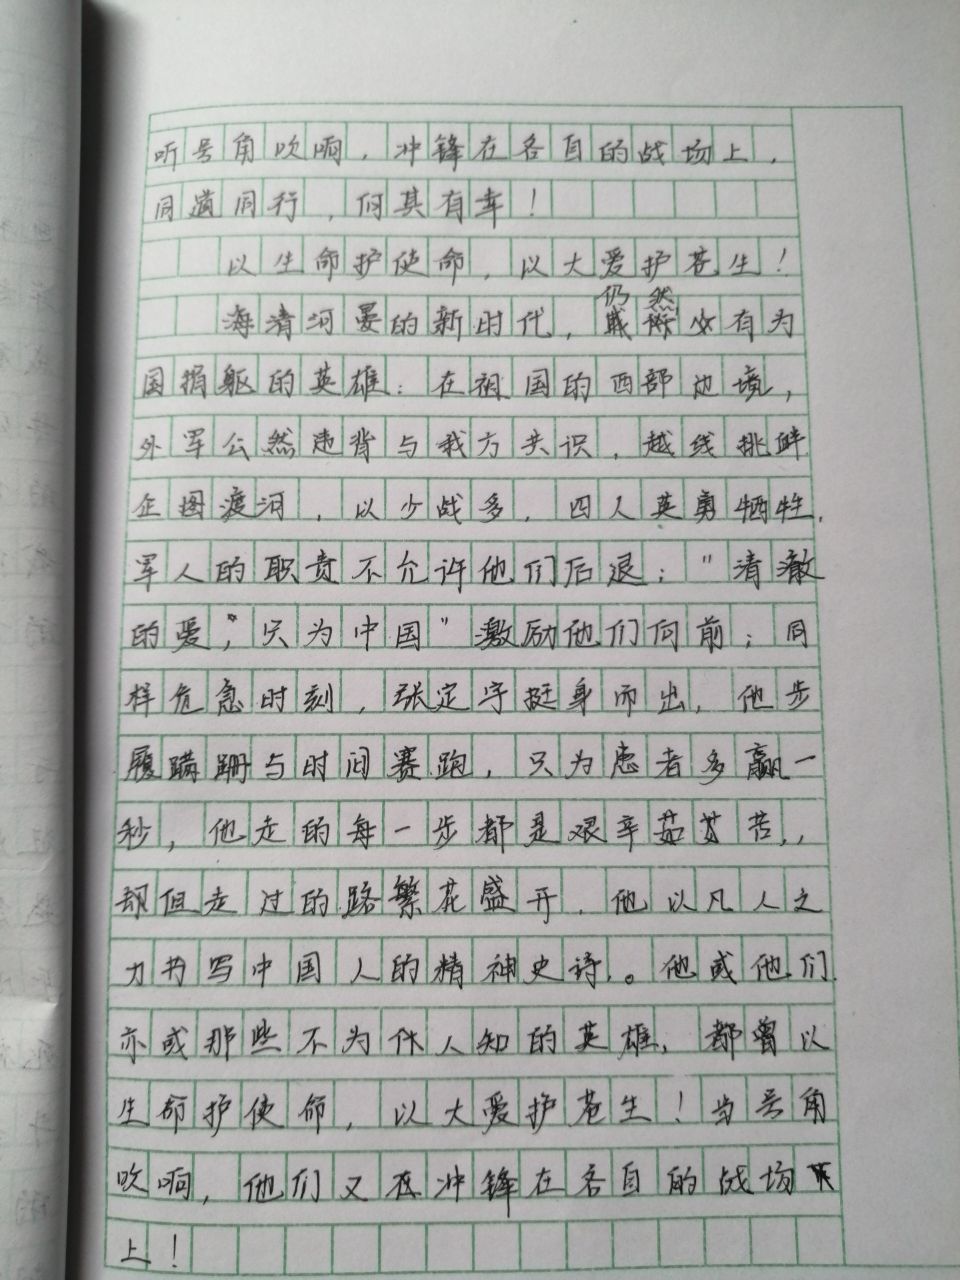 听号角吹响，冲锋在各自的战场上，
同道同行，何其有幸！
以生命护使命，以大爱护苍生！
海清河晏的新时代，仍然少有为
国捐躯的英雄：在祖国的西部边境，
外军公然违背与我方共识，越线挑衅
企图渡河，以少战多，四人英勇牺牲，
军人的职责不允许他们后退；"清澈
的爱，"只为中国"激励他们向前；同
样危急时刻，张定宇挺身而出，他步
履蹒跚与时间赛跑，只为患者多赢一
秒，他走的每一步都是艰辛茹苦，
却但走过的路繁花盛开，他以凡人之
力书写中国人的精神史诗。他或他们
亦或那些不为人知的英雄，都曾以
生命护使命，以大爱护苍生！当号角
吹响，他们又在冲锋在各自的战场
上！